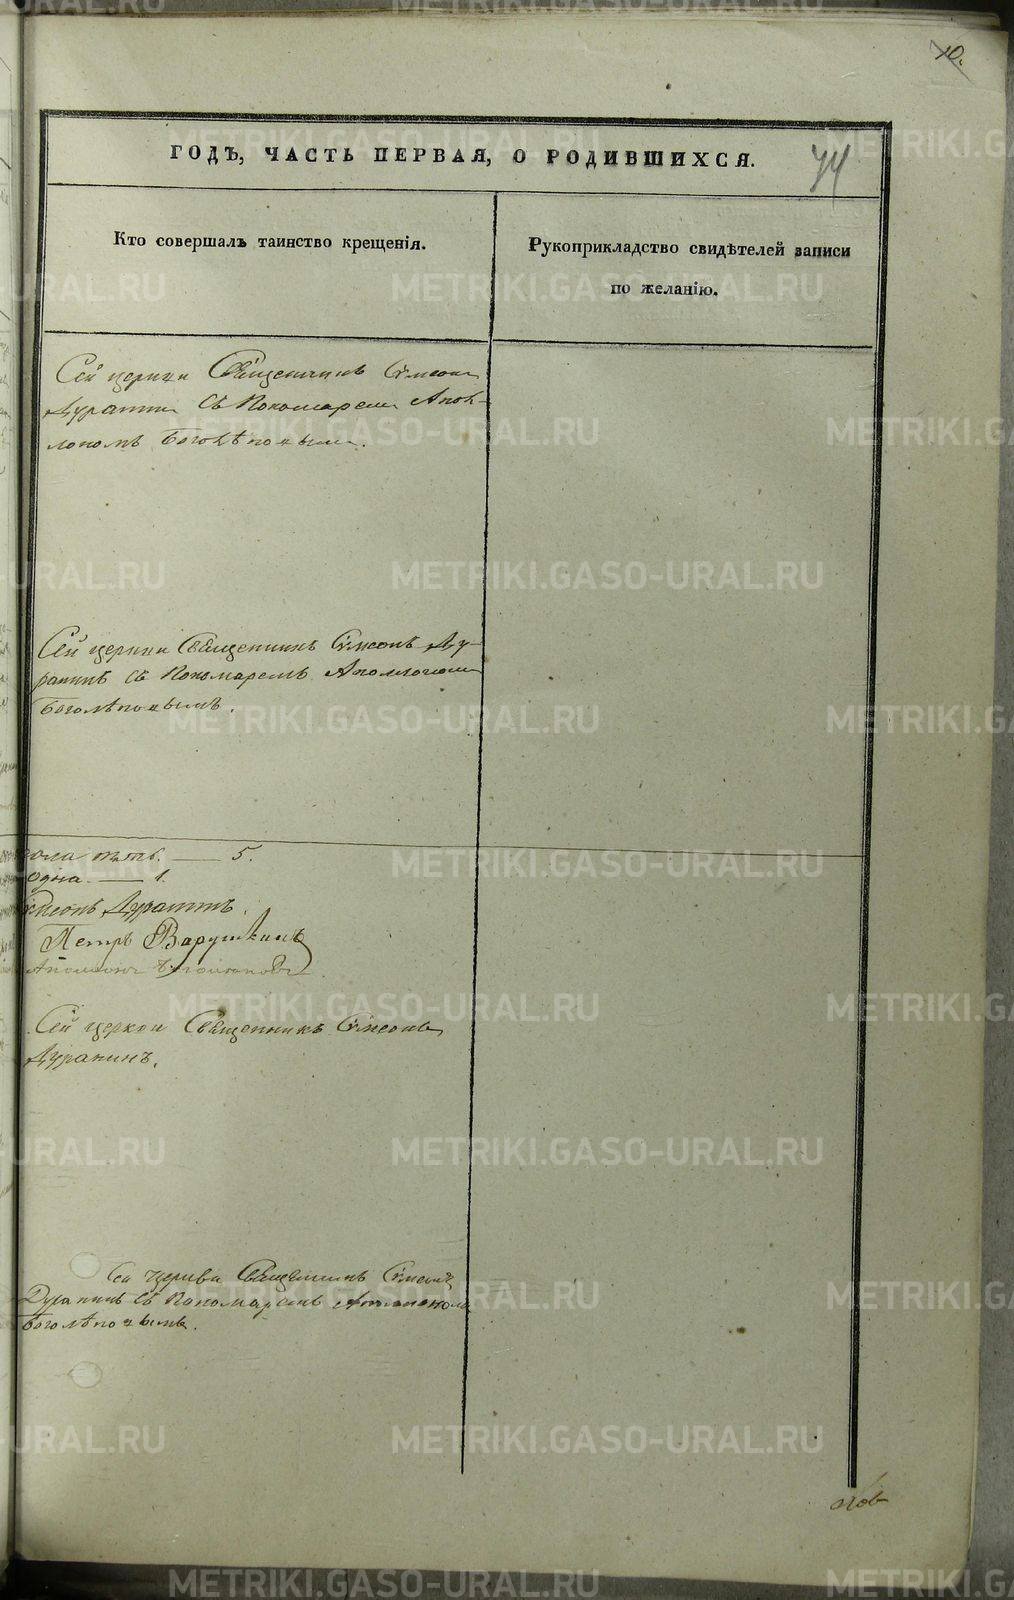 10.
ГОДЪ, ЧАСТЬ ПЕРВАЯ, О РОДИВШИХСЯ.
74
Кто совершалъ таинство крещенія.
Рукоприкладство свидѣтелей записи
по желанію.
Сей церкви Священникъ Сѵмеонъ
Дурапинъ съ Пономаремъ Апол-
лономъ Боголѣповымъ.
Сей церкви Священникъ Сѵмеонъ Ду-
рапинъ съ Пономаремъ Аполлономъ
Боголѣповымъ.
пола пять. — 5.
одна — 1.
Сѵмеонъ Дурапинъ.
Петръ Варушкинъ
Аполлонъ Боголѣповъ
Сей церкви Священникъ Сѵмеонъ
Дурапинъ.
Сей церкви Священникъ Сѵмеонъ
Дурапинъ съ Пономаремъ Аполлономъ
Боголѣповымъ.
METRIKI.GASO-URAL.RU